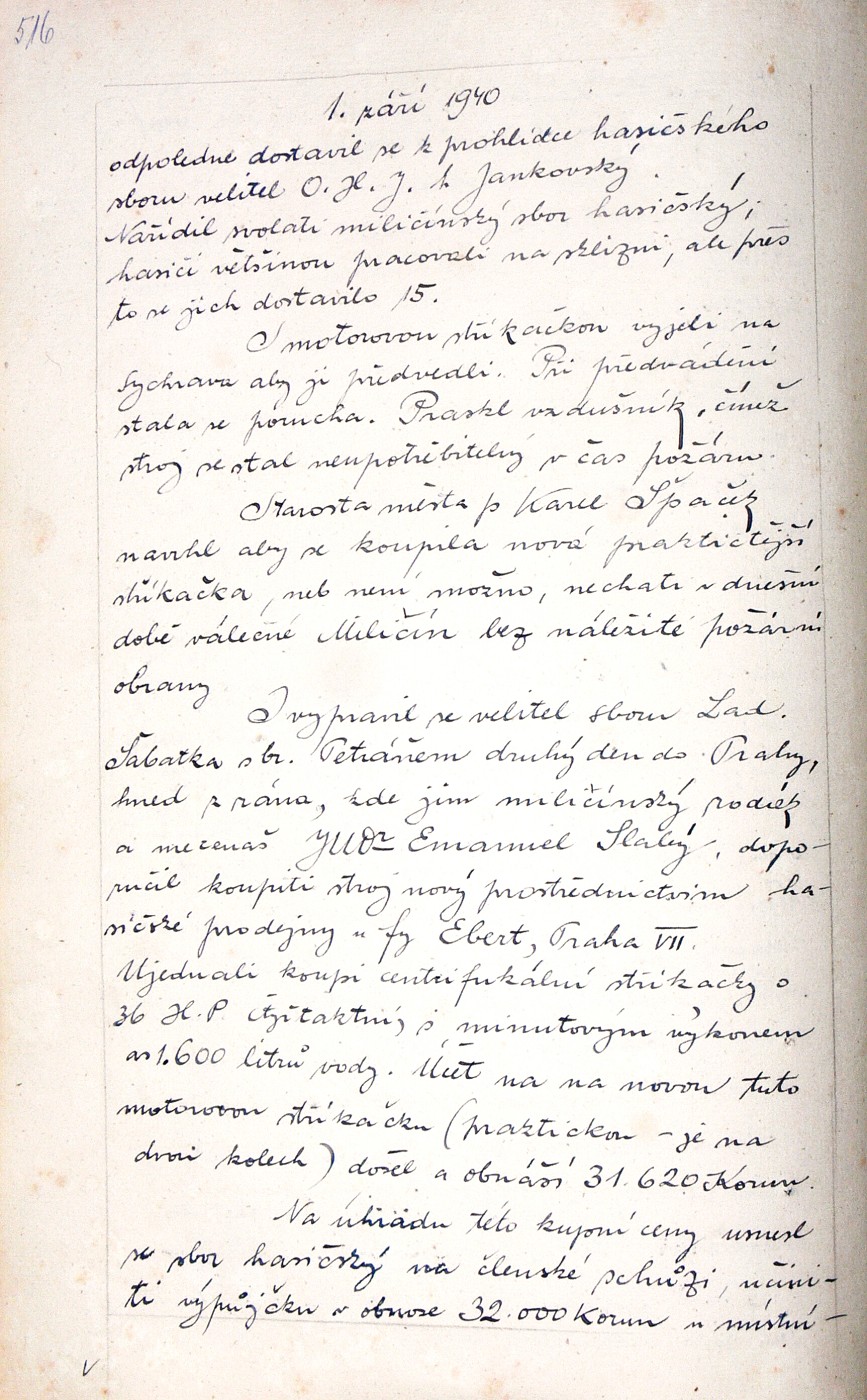 516
1. září 1940
odpoledne dostavil se k prohlídce hasičského
sboru velitel O. H. J. br. Jankovský.
Nařídil svolati miličínský sbor hasičský;
hasiči většinou pracovali na sklizni, ale přes
to se jich dostavilo 15.
S motorovou stříkačkou vyjeli na
Sychrava aby ji předvedli. Při předvádění
stala se porucha. Praskl vzdušník, čímž
stroj se stal neupotřebitelný v čas požáru.
Starosta města p Karel Špaček
navrhl aby se koupila nová praktičtější
stříkačka, neb není možno, nechati v dnešní
době válečné Miličín bez náležité požární
obrany
I vypravil se velitel sboru Lad.
Šabatka s br. Petráněm druhý den do Prahy,
hned z rána, kde jim miličínský rodák
a mecenáš JUDr Emanuel Slabý, dopo-
ručil koupiti stroj nový prostřednictvím ha-
sičské prodejny u fy Ebert, Praha VII.
Ujednali koupi centrifukální stříkačky o
36 H.P. čtyřtaktní, s minutovým výkonem
as 1.600 litrů vody. Účet na na novou tuto
motorovou stříkačku (praktickou - je na
dvou kolech) došel a obnáší 31.620 Korun.
Na úhradu této kupní ceny usnesl
se sbor hasičský na členské schůzi, učini-
ti výpůjčku v obnose 32.000 Korun u místní-
v